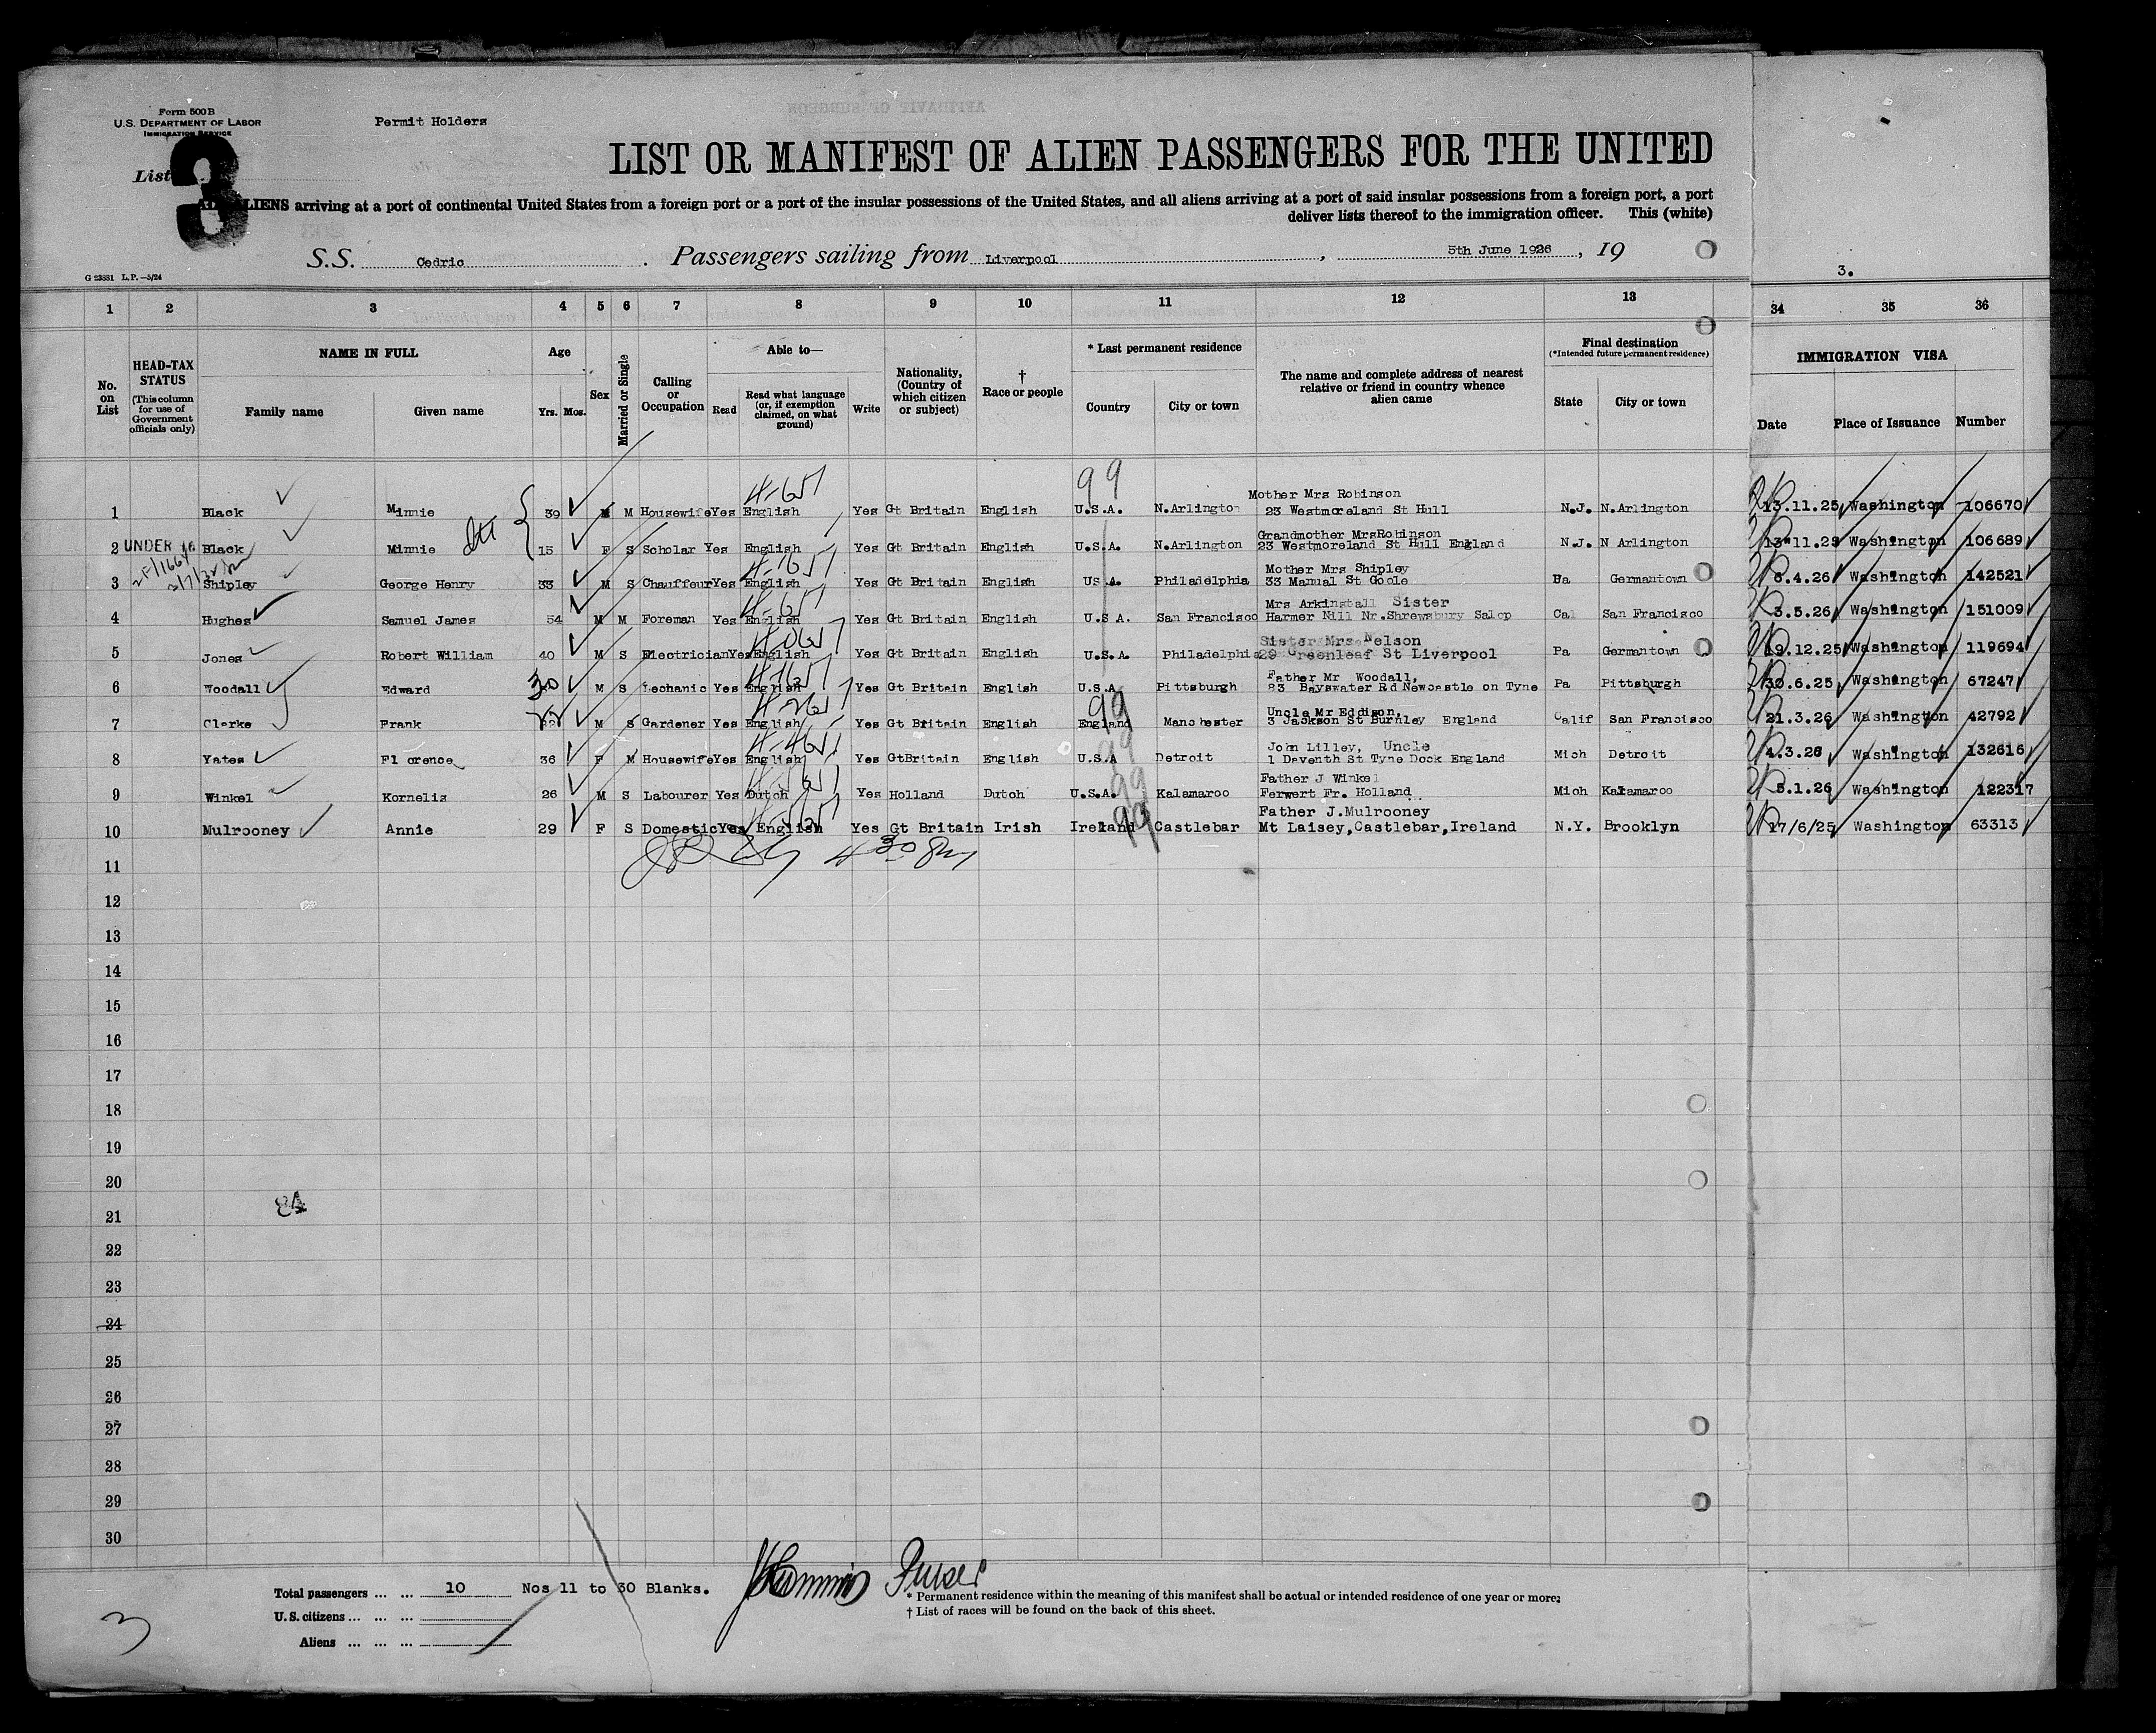 Form 500B
U.S. DEPARTMENT OF LABOR
IMMIGRATION SERVICE
Permit Holders
List 3
LIST OR MANIFEST OF ALIEN PASSENGERS FOR THE UNITED
ALL ALIENS arriving at a port of continental United States from a foreign port or a port of the insular possessions of the United States, and all aliens arriving at a port of said insular possessions from a foreign port, a port
deliver lists thereof to the immigration officer. This (white)
S.S. Cedric . Passengers sailing from Liverpool , 5th June 1926 , 19
G 23881 L.P.—5/24
3.
1 2 3 4 5 6 7 8 9 10 11 12 13 34 35 36
No. on List
HEAD-TAX STATUS (This column for use of Government officials only)
NAME IN FULL
Family name Given name
Age
Yrs. Mos.
Sex
Married or Single
Calling or Occupation
Able to—
Read Read what language (or, if exemption claimed, on what ground) Write
Nationality, (Country of which citizen or subject)
† Race or people
* Last permanent residence
Country City or town
The name and complete address of nearest relative or friend in country whence alien came
Final destination
(*Intended future permanent residence)
State City or town
IMMIGRATION VISA
Date Place of Issuance Number
99
Mother Mrs Robinson
1 Black Minnie 39 M M Housewife Yes English Yes Gt Britain English U.S.A. N.Arlington 23 Westmoreland St Hull N.J. N.Arlington 13.11.25 Washington 106670
Grandmother MrsRobinson
2 UNDER 16 Black Minnie 15 F S Scholar Yes English Yes Gt Britain English U.S.A. N.Arlington 23 Westmoreland St Hull England N.J. N Arlington 13"11.25 Washington 106689
Mother Mrs Shipley
3 Shipley George Henry 33 M S Chauffeur Yes English Yes Gt Britain English US.A. Philadelphia 33 Manual St Goole Pa Germantown 6.4.26 Washington 142521
Mrs Arkinstall Sister
4 Hughes Samuel James 54 M M Foreman Yes English Yes Gt Britain English U.S A. San Francisco Harmer Nill Nr.Shrewsbury Salop Cal San Francisco 3.5.26 Washington 151009
Sister Mrs Nelson
5 Jones Robert William 40 M S Electrician Yes English Yes Gt Britain English U.S.A. Philadelphia 29 Greenleaf St Liverpool Pa Germantown 19.12.25 Washington 119694
Father Mr Woodall,
6 Woodall Edward 30 M S Mechanic Yes English Yes Gt Britain English U.S.A. Pittsburgh 23 Bayswater Rd Newcastle on Tyne Pa Pittsburgh 30.6.25 Washington 67247
99
Uncle Mr Eddison,
7 Clarke Frank M S Gardener Yes English Yes Gt Britain English England Manchester 3 Jackson St Burnley England Calif San Francisco 21.3.26 Washington 42792
99
John Lilley, Uncle
8 Yates Florence 36 F M Housewife Yes English Yes GtBritain English U.S.A Detroit 1 Daventh St Tyne Dock England Mich Detroit 4.3.26 Washington 132616
99
Father J Winkel
9 Winkel Kornelis 26 M S Labourer Yes Dutch Yes Holland Dutch U.S.A. Kalamaroo Ferwert Fr. Holland Mich Kalamaroo 5.1.26 Washington 122317
99
Father J.Mulrooney
10 Mulrooney Annie 29 F S Domestic Yes English Yes Gt Britain Irish Ireland Castlebar Mt Laisey,Castlebar,Ireland N.Y. Brooklyn 17/6/25 Washington 63313
11
12
13
14
15
16
17
18
19
20
21
22
23
24
25
26
27
28
29
30
Total passengers ... ... 10 Nos 11 to 30 Blanks.
U.S. citizens ... ... ...
Aliens ... ... ...
Purser
* Permanent residence within the meaning of this manifest shall be actual or intended residence of one year or more.
† List of races will be found on the back of this sheet.
3